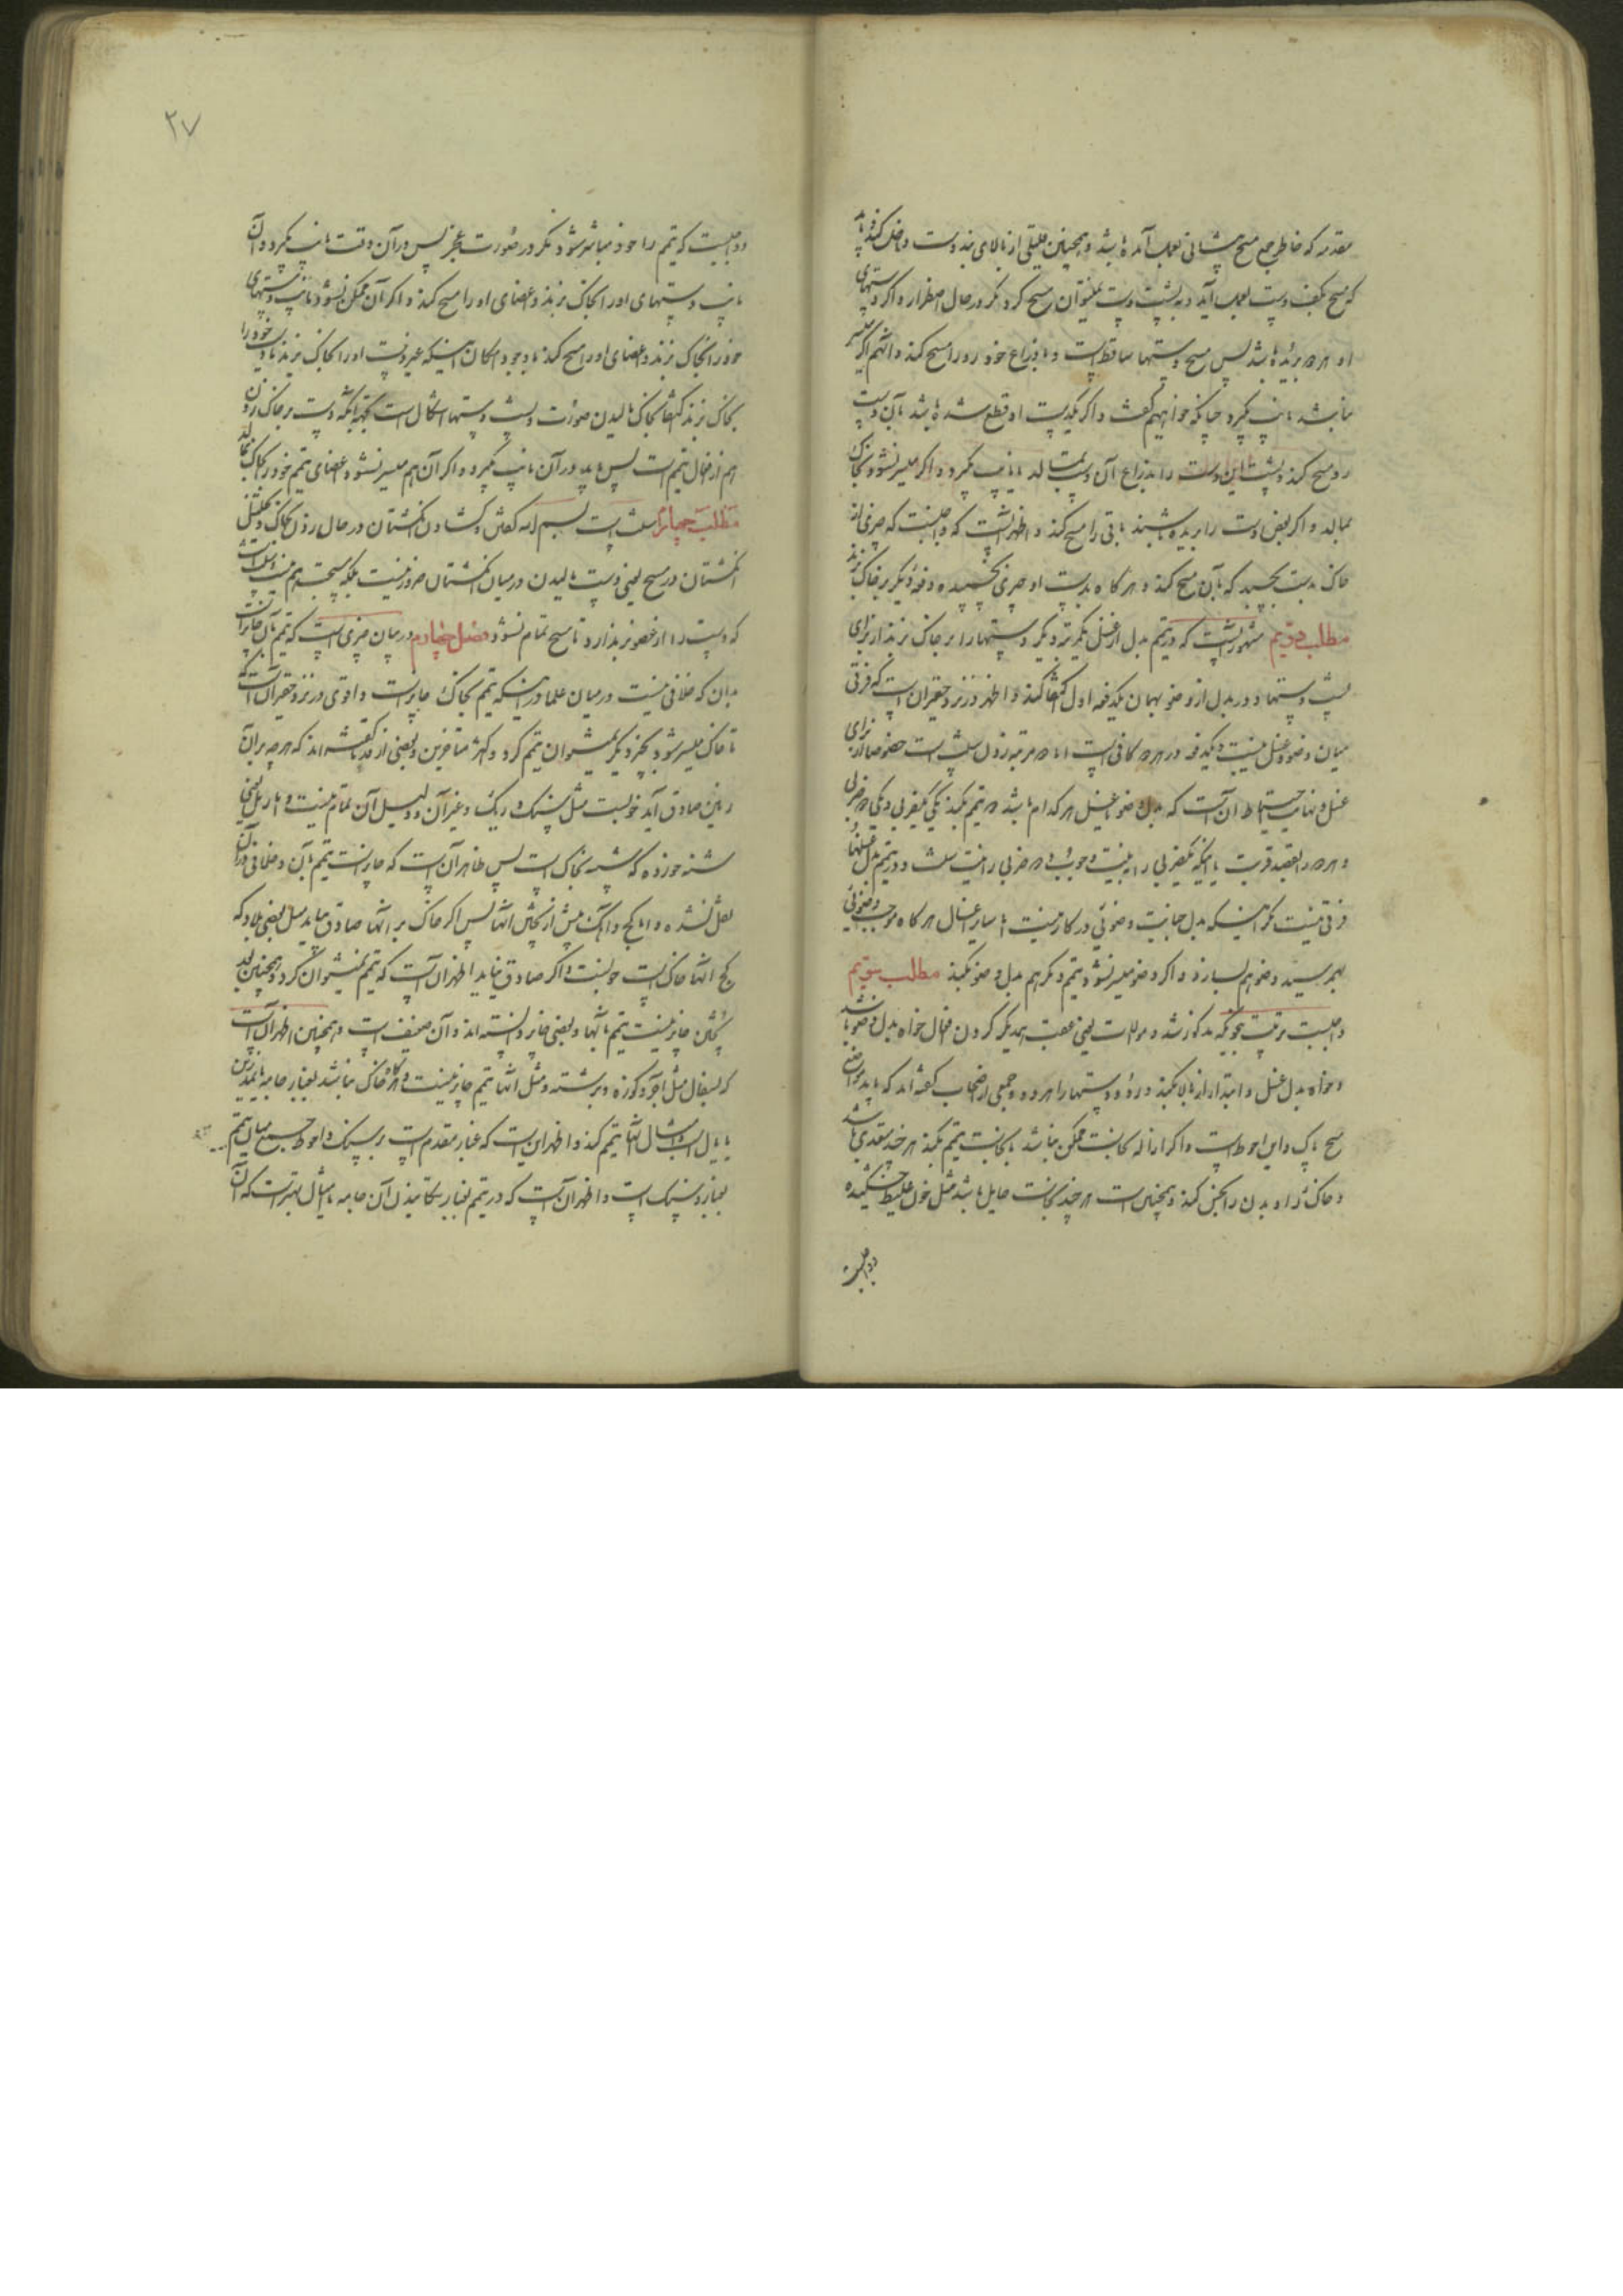 مقدر که خاطر جمع مسح پیشانی بعمل آمده باشد و همچنین قلیلی از بالای بند دست داخل کند و باید
که مسح بکف دست بعمل آید و به پشت دست نمیتوان مسح کرد مگر در حال اضطرار و اگر دستهای
او هر دو بریده باشد پس مسح دستها ساقط است و با ذراع خود رو را مسح کند و آنهم اگر میسر
نباشد نایب گیرد چنانکه خواهیم گفت و اگر یکدست او قطع شده باشد بآن دست
رو مسح کند و پشت این دست را بذراع آن دست بمالد یا نایب گیرد و اگر میسر نشود بخاک
بمالد و اگر بعض دست را بریده باشند باقی را مسح کند و اظهر آنست که واجبست که چیزی از
خاک بدست بچسبد که بآن مسح کند و هر گاه بدست او چیزی نچسبیده دفعه دیگر بر خاک بزند
مطلب دویم مشهور آنست که در تیمم بدل از غسل یکمرتبه دیگر دستها را بر خاک بزند از برای
پشت دستها و در بدل از وضو بهمان یکدفعه اول اکتفا کند و اظهر در نزد حقیر آن است که فرقی
میان وضو و غسل نیست و یکدفعه در هر دو کافی است اما دو مرتبه زدن سنت است خصوصا از برای
غسل و نهایت احتیاط آن است که بدل وضو یا غسل هر کدام باشد دو تیمم بکند یکی بیکضربی و یکی دو ضربی
و هر دو را بقصد قربت یا اینکه یکضربی را به نیت وجوب و دو ضربی را نیت سنت و در تیمم بدل غسلها
فرقی نیست مگر اینکه بدل جنابت وضوئی در کار نیست اما سایر اغسال هر گاه موجب وضوئی
بهم رسید وضو هم بسازد و اگر وضو میسر نشود تیمم دیگر هم بدل وضو بکند مطلب سیم
واجبست ترتیب بنحویکه مذکور شد و موالات یعنی عقب همدیگر کردن افعال خواه بدل وضو باشد
و خواه بدل غسل و ابتدا از بالا بکند در رو و دستها را هر دو و جمعی از اصحاب گفته اند که باید مواضع
مسح پاک و این احوط است و اگر ازاله نجاست ممکن نباشد با نجاست تیمم بکند هر چند متعدی باشد
و خاک را و بدن را نجس کند و همچنین است هر چند نجاست حایل باشد مثل خون غلیظ خشکیده
و واجبست
۲۷
و واجبست که تیمم را خود مباشر شود مگر در صورت عجز پس در آن وقت نایب بگیرد و آن
نایب دستهای او را بخاک بزند و اعضای او را مسح کند و اگر آن ممکن نشود نایب دستهای
خود را بخاک بزند و اعضای او را مسح کند با وجود امکان اینکه غیر دست او را بخاک بزند یا دست خود را
بخاک بزند اکتفا بخاک مالیدن صورت و پشت دستها اشکال است بجهة آنکه دست بر خاک زدن
هم از افعال تیمم است پس باید در آن نایب بگیرد و اگر آن هم میسر نشود اعضای تیمم خود را بخاک بمالد
مطلب چهارم سنت است بسم الله گفتن و گشادن انگشتان در حال زدن بخاک و تخلیل
انگشتان در مسح یعنی دست مالیدن در میان انگشتان ضرور نیست بلکه مستحب هم نیست و سنت است
که دست را از عضو بر ندارد تا مسح تمام نشود فصل چهارم در بیان چیزی است که تیمم بآن جایز است
بدان که خلافی نیست در میان علما در اینکه تیمم بخاک جایز است و اقوی در نزد حقیر آن است که
تا خاک میسر شود بچیز دیگر نمیتوان تیمم کرد و اکثر متأخرین و بعضی از قدما گفته اند که هر چه بر آن
زمین صادق آید خوبست مثل سنگ و ریگ و غیر آن و دلیل آن تمام نیست و اما ریگ یعنی
شنه خورده که شبیه بخاک است پس ظاهر آن است که جایز است تیمم بآن و خلافی در آن
نقل نشده و اما گچ و آهک پیش از پختن آنها پس اگر خاک بر آنها صادق بیاید مثل بعضی بلاد که
گچ آنها خاک است خوبست و اگر صادق نیاید اظهر آن است که تیمم نمیتوان کرد و همچنین بعد
پختن جایز نیست تیمم بآنها و بعضی جایز دانسته اند و آن ضعیف است و همچنین اظهر آن است
که بسفال مثل آجر و کوزه و برشته و مثل آنها تیمم جایز نیست و هر گاه خاک نباشد بغبار جامه یا نمد زین
یا یال اسب و امثال آنها تیمم کند و اظهر این است که غبار مقدم است بر سنگ و احوط جمع میان تیمم
بغبار و سنگ است و اظهر آن است که در تیمم بغبار تکانیدن آن جامه یا مثال بهتر است که آن